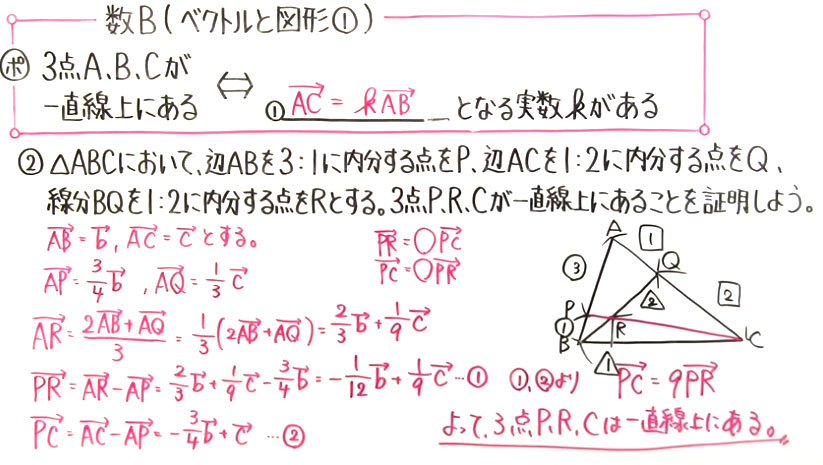 数B(ベクトルと図形①)
ポ 3点A、B、Cが
一直線上にある ⇔ ① AC→ = kAB→ となる実数kがある
② △ABCにおいて、辺ABを3:1に内分する点をP、辺ACを1:2に内分する点をQ、
線分BQを1:2に内分する点をRとする。3点P、R、Cが一直線上にあることを証明しよう。
AB→ = b→, AC→ = c→ とする。
AP→ = 3/4 b→, AQ→ = 1/3 c→
AR→ = (2AB→+AQ→)/3 = 1/3(2AB→+AQ→) = 2/3 b→ + 1/9 c→
PR→ = AR→ − AP→ = 2/3 b→ + 1/9 c→ − 3/4 b→ = −1/12 b→ + 1/9 c→ …①
PC→ = AC→ − AP→ = −3/4 b→ + c→ …②
PR→ = ○PC→
PC→ = ○PR→
A
1
③
Q
2
2
P
①
R
B
C
1
①,②より PC→ = 9PR→
よって、3点P、R、Cは一直線上にある。